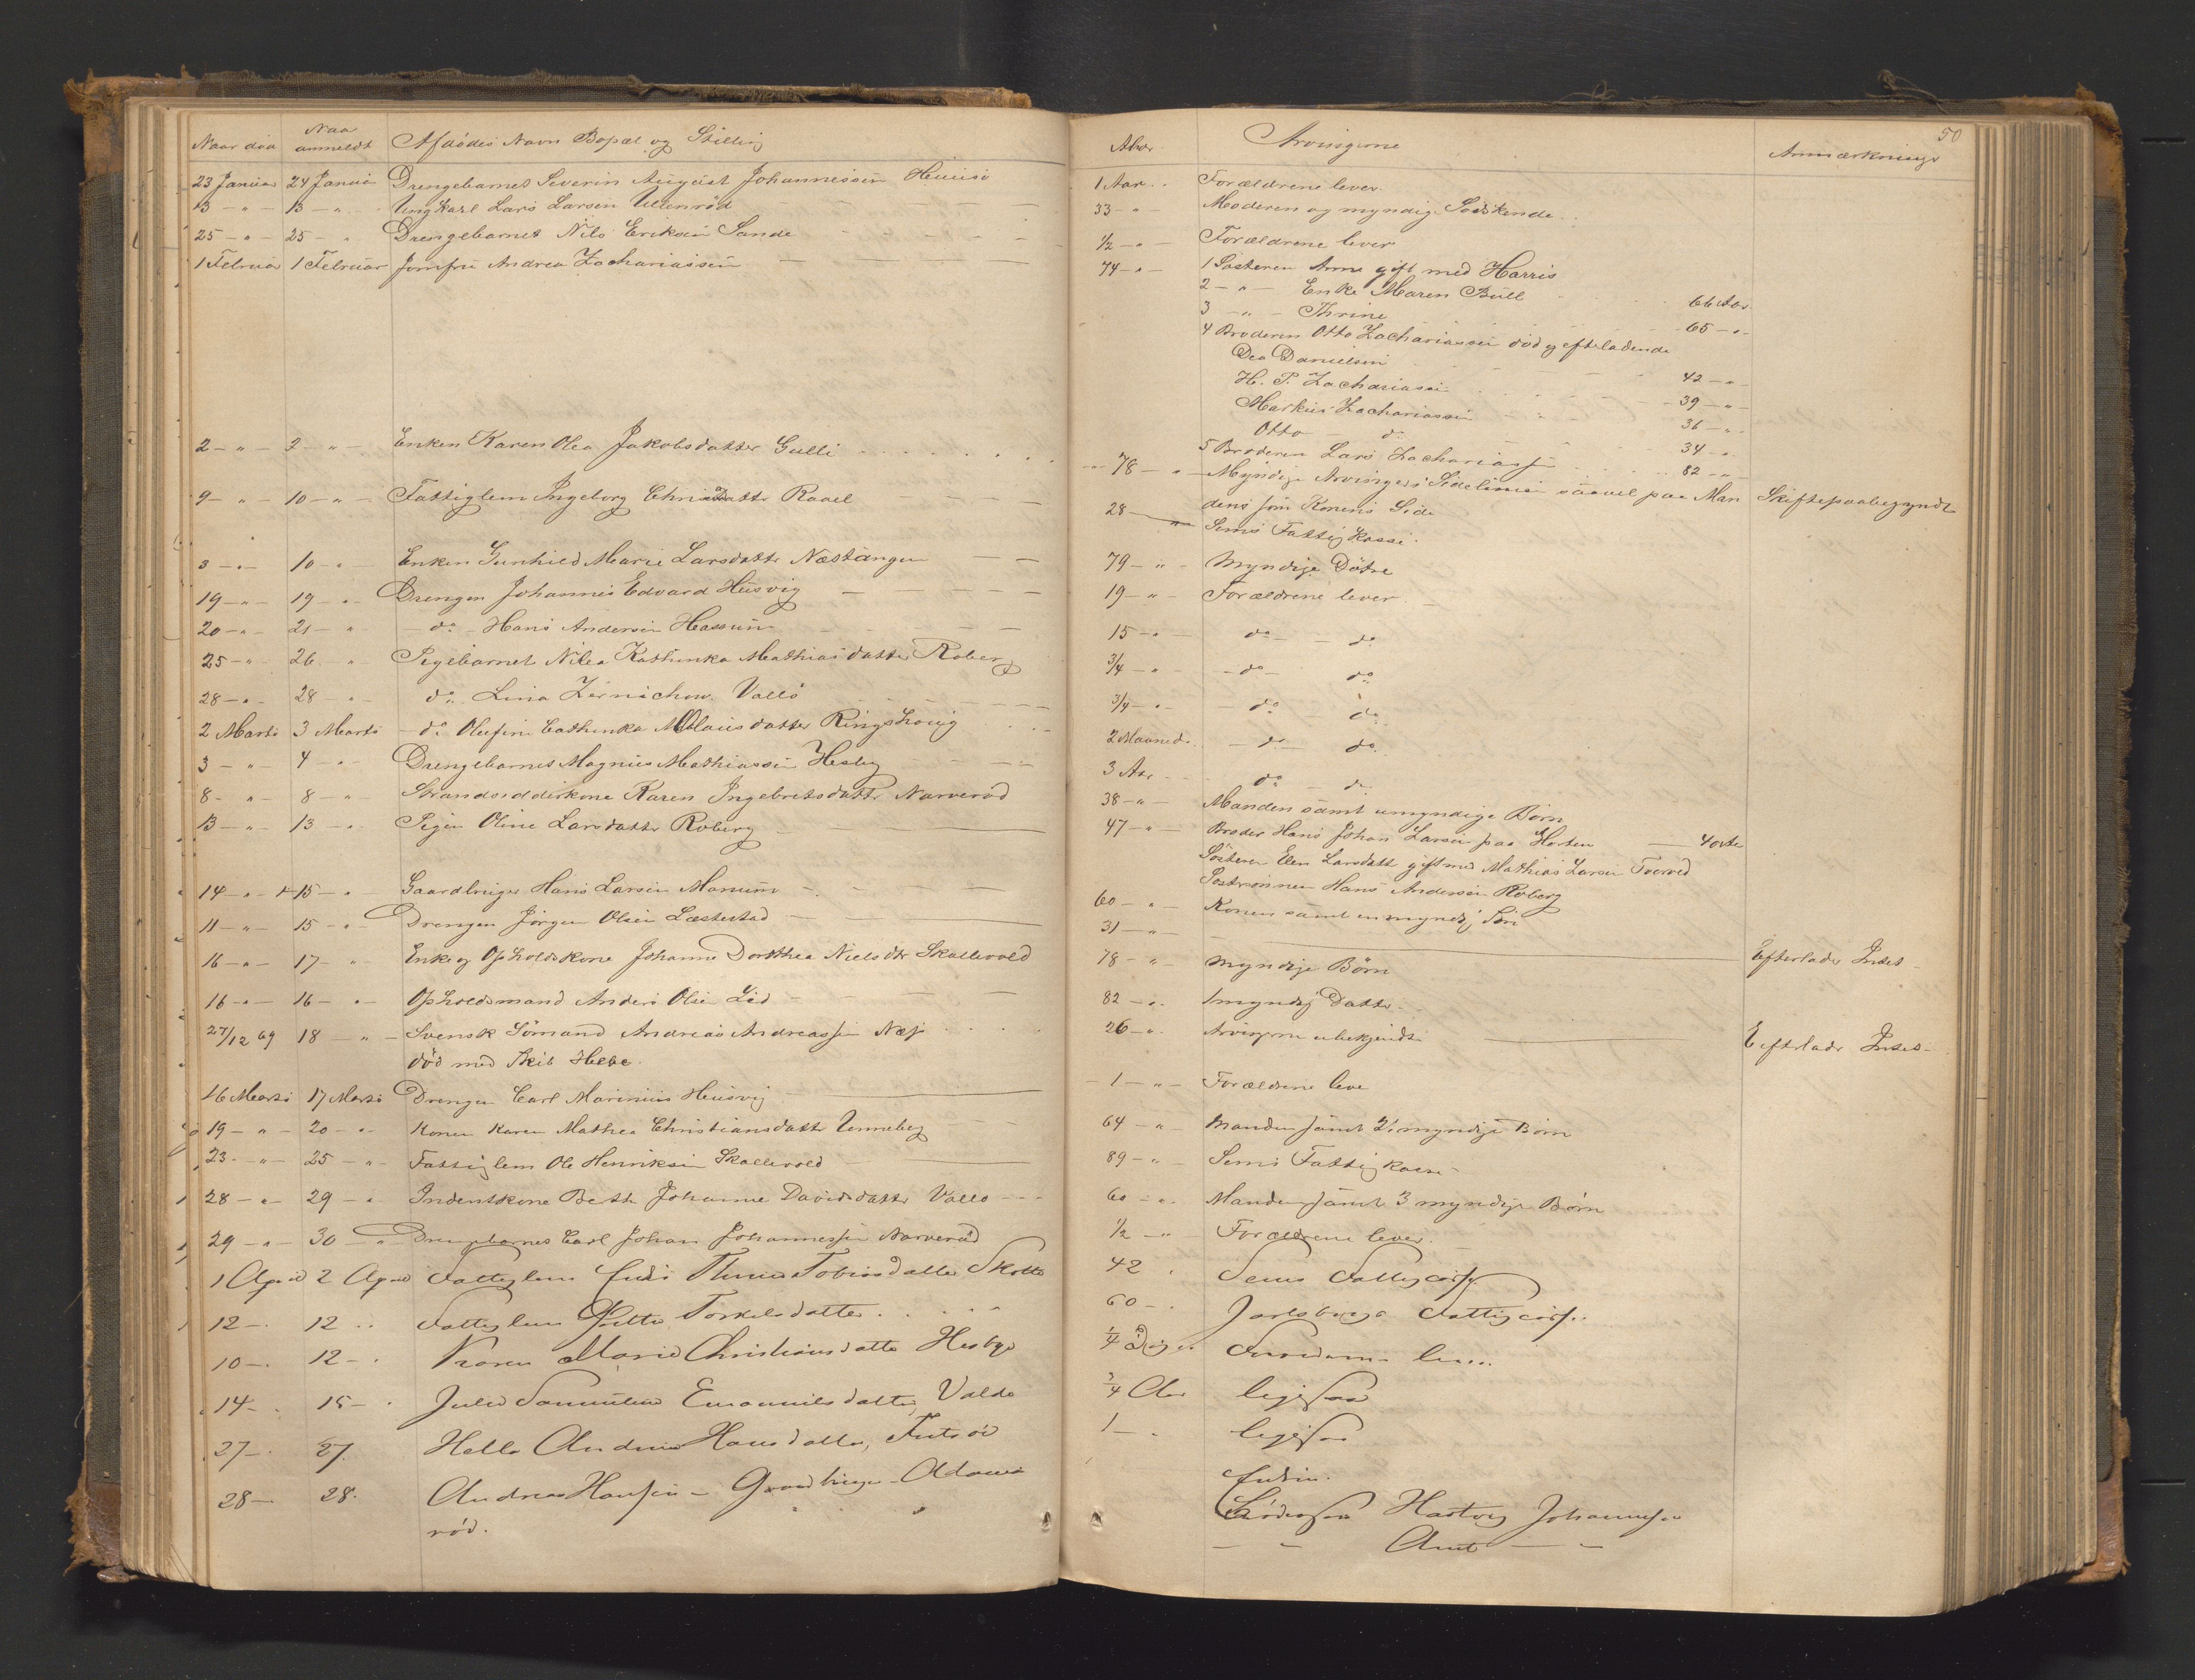 Naar død
Naar anmeldt
Afdødes Navn Bopæl og Stilling
23 Januar 24 Januar Drengebarnet Severin August Johannessen
13 - " - 13 - " - Ungkarl Lars Larsen Ullenrød
25 - " - 25 - " Drengebarnet Nils Eriksen Sande
1 Februar 1 Februar Jomfru Andrea Zachariassen
2 - " - 2 - " - Enken Karen Olea Jakobsdatter Gulli
9 - " - 10 - " - Fattiglem Ingeborg Raael
3 - " - 10 - " Enken Gunhild Marie Larsdatter Næstangen
19 - " - 19 - " - Drengen Johannes Edvard Husvig
20 - " - 21 - " - do Hans Andersen Hassum
25 - " - 26 - " Pigebarnet Nilea Kathinka Mathiasdatter Roberg
28 - " - 28 - " - do Lina Vallö
2 Marts 3 Marts - do Olufine Cathinka Olausdatter Ringshoug
3 - " - 4 - " - Drengebarnet Magnus Mathiassen Hesby
8 - " - 8 - " Strandsidderkone Karen Ingebretsdattr Narverød
13 - " - 13 - " Pigen Oline Larsdatter Roberg
14 - " - 15 - " Gaardbruger Hans Larsen Manum
11 - " - 15 - " - Drengen Jörgen Olsen
16 - " - 17 - " Enke og Opholdskone Johanne Dorthea Nielsdtr Skallevold
16 - " - 16 - " - Opholdsmand Anders Olsen Lid
27/12 69 18 - " - Svensk Sömand Andreas Andreassen
död med Skib Hebe
16 Marts 17 Marts Drengen Carl Marinius Husvig
19 - " - 20 - " - Konen Karen Mathea Christiansdattr Unneberg
23 - " - 25 - " - Fattiglem Ole Henriksen Skallevold
28 - " - 29 - " Inderstkone Johanne Davidsdattr Vallo
29 - " - 30 - " - Drengebarnet Carl Johan Johannessen Narverød
1 April 2 April Fattiglem Tobiasdatter
12 - . 12 . . Fattiglem Torkelsdatter
10 - . 12 - . Karen Marie Christiansdatter Hesby
14 - . 15 - . Julie Emanuelsdatter, Valdø
27 - . 27. Helle Andrea Hansdatter,
28 - . 28. Andreas Hansen - Gaardbruger
rød.
50
Alder
Arvingerne
Anmærkninger
1 Aar Forældrene lever
33 - " Moderen og myndige Södskende
1/2 - " - Forældrene lever
74 - " - 1 Søsteren Anne gift med Harris
2 - " - Enke Maren Bull 66 Aar
3 - " - Thrine 65 - " -
4 Broderen Otto Zachariassen død og efterladende
Danielsen 42 - " -
H. P. Zachariassen 39 - " -
Markus Zachariassen 36 - " -
Otto do 34 - " -
5 Broderen Lars Zachariassen 82 - " -
78 - " - Myndige Arvinger i Sidelinien saavel paa Man Skifte paabegyndt
dens som Konens Side
28 - " Sems Fattigkasse.
79 - " - Myndige Döttre
19 - " - Forældrene lever
15 - " do - do
3/4 - " - do do
3/4 - " - - do do
2 Maaneder - do - do
3 Aar - do - do
38 - " - Manden samt umyndige Börn
47 - " - Broder Hans Johan Larsen paa Horten
Søsteren Elen Larsdattr gift med Mathias Larsen
Søstersønnen Hans Andersen Roberg
60 - " - Konen samt en myndig Søn
31 - " - Efterlader Intet
78 - " - Myndige Börn
82 - " . 1 myndig Datter
26 - " . Arvingerne ubekjendte Efterlader Intet
1 - " - Forældrene lever
64 - " - Manden samt 2 myndige Børn
89 - " - Sems Fattigkasse
60 - " . Manden samt 3 myndige Børn
1/2 - " - Forældrene lever.
42 . Sems Fattigcasse
60 - . Jarlsbergs Fattigcasse
1/4 Forældrene lever
3/4 Aar ligesaa
1 - . ligesaa
Enken.
Brodersøn Hartvig Johannesen
- - -